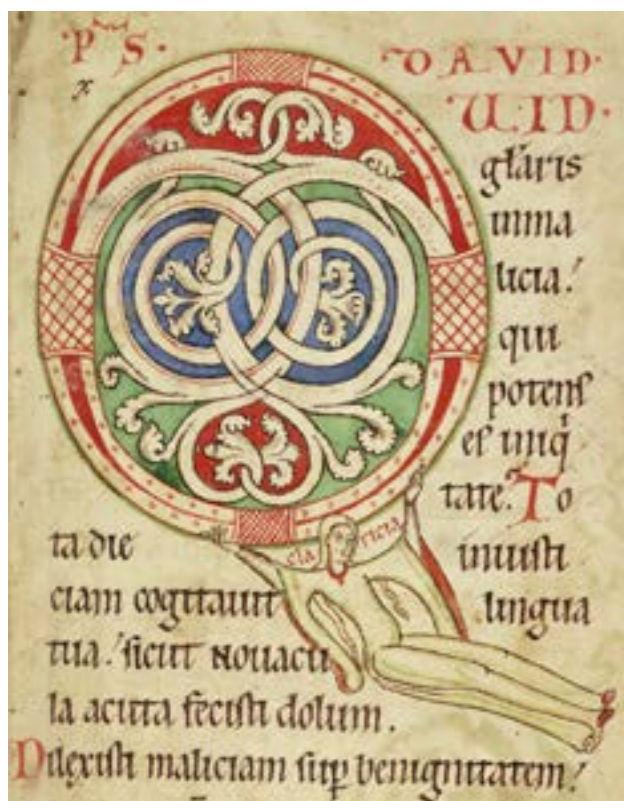 ·PS· DAVID·
x
QUID·
gl̄aris
inma
licia.'
qui
potens
es iniq̇
tate. To
cla ricia
ta die iniusti
ciam cogitauit lingua
tua.' sicut nouacu
la acuta fecisti dolum.
Dilęxisti maliciam sup̲ benignitatem.'